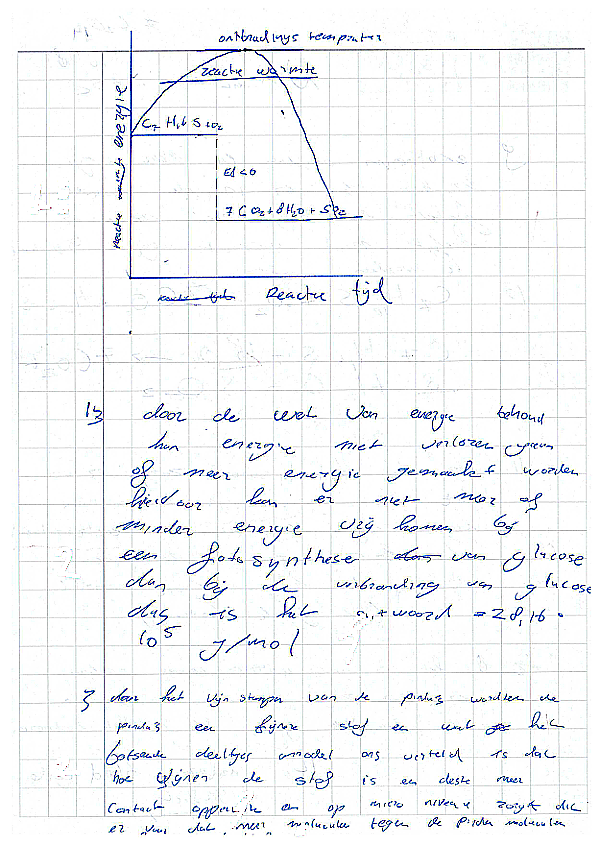 ontbradings temprater
reactie warmte
C7 H16 S + O2
energie
E < 0
7 CO2 + 8 H2O + SO2
Reactie tijd
door de wet van energie behoud
kan energie niet verloren gaan
of meer energie gemaakt worden
hierdoor kan er niet meer of
minder energie vrij komen bij
een fotosynthese van glucose
dan bij de verbranding van glucose
dus is het antwoord = 28,16 ·
10^5 J/mol
3 door het fijn stampen van de pindas worden de
pindas een fijnere stof en wat het
botsende deeltjes model ons verteld is dat
hoe fijner de stof is een deste meer
contact oppervlak en op micro niveau zorgt dit
er voor dat meer moleculen tegen de pinda moleculen